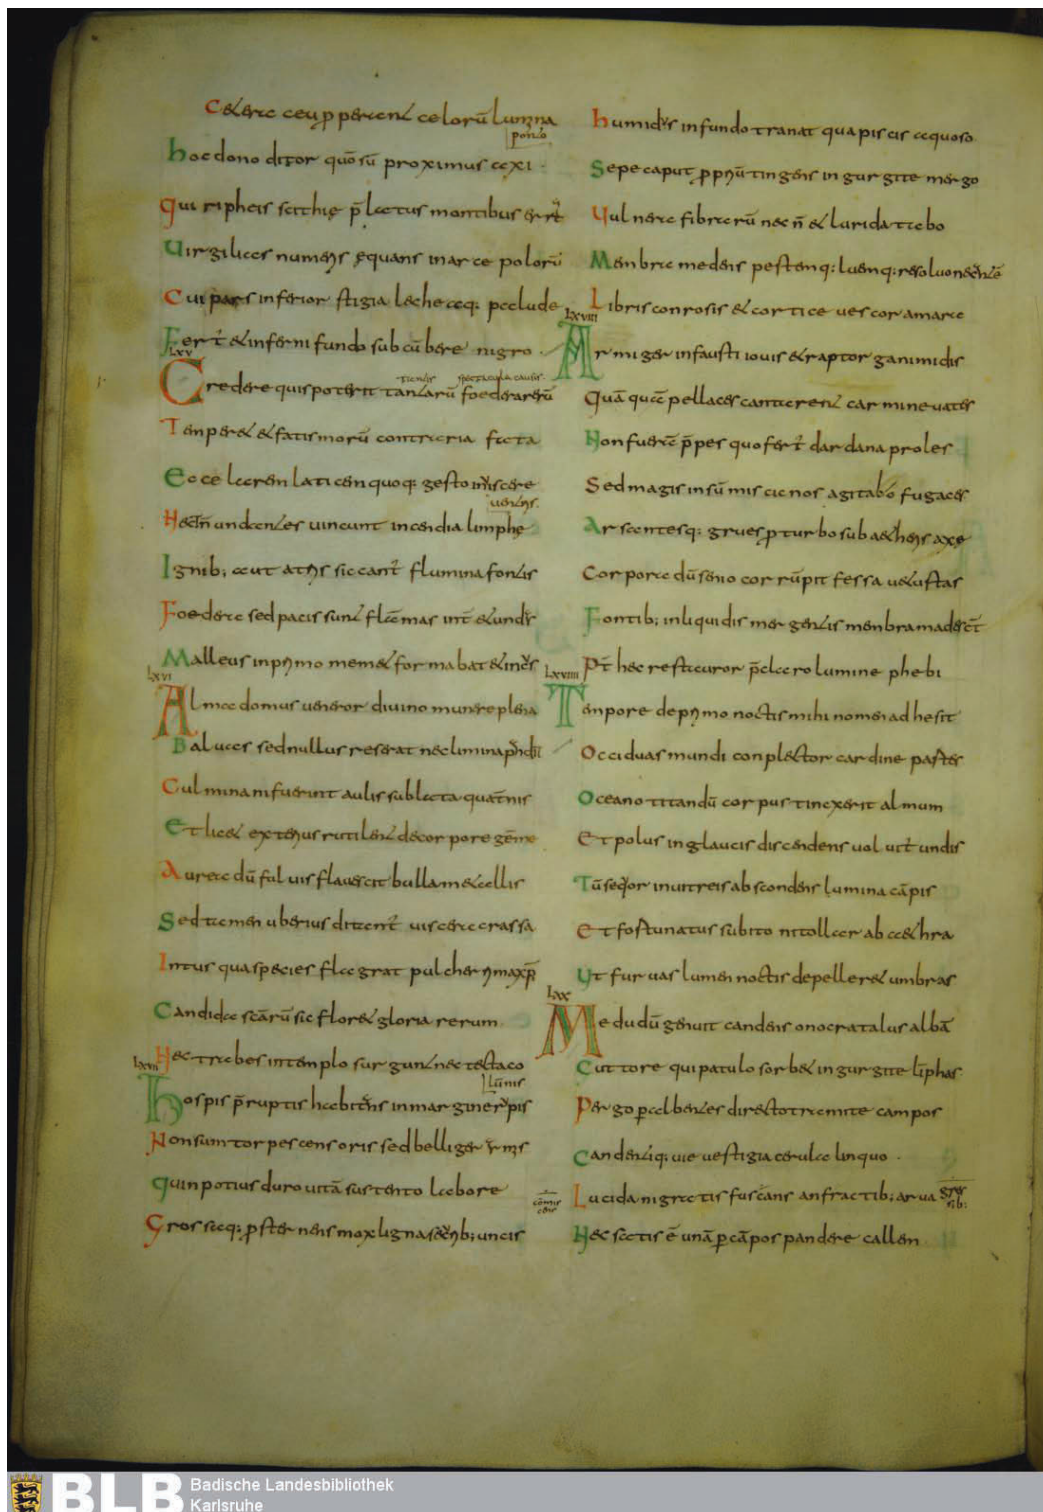 Cetera ceu properent celorū lumina
ponto
hoc dono ditor quō sū proximus axi
qui ripheis scithię p̄latus montibus errat
Uirgilias numeris ęquans in arce polorū
Cui pars inferior stigia letheaq; palude
Fert̄ et inferni fundo subcūbere nigro
LXV
tantis spectacula causis
Credere quis poterit tantarū foedera rerū
Temperet et fatis morū contraria fata
Ecce larem laticem quoq; gesto in uiscere
uentris
Hec n̄ undantes uincunt incendia limphę
Ignib; aut atris siccant̄ flumina fontis
Foedera sed pacis sunt flāmas int̄ et undas
Malleus in primo memet formabat et incus
LXVI
Alma domus ueneror diuino munere plena
Ualuas sed nullus reserat nec limina pandit
Culmina ni fuerint aulis sublata quat̄nis
Et licet exterius rutilent de corpore gēme
Aurea dū fuluis flauescit bulla metallis
Sed tamen uberius ditant̄ uiscera crassa
Intus qua species flagrat pulcherrima xp̄i
Candida sc̄arū sic floret gloria rerum
Nec trabes in templo surgunt nec tecta co
lūnis
LXVII
Hospis p̄ruptis habitans in margine ripis
Non sum torpescens oris sed belliger armis
quin potius duro uitā sustento labore
Grossaq; p̄sternens mox ligna securib; uncis
humidus in fundo tranat qua piscis aequoso
Sepe caput ppriū tingens in gurgite mergo
Uulnera fibrarū nec n̄ et lurida tabo
Membra medens pestemq; luemq; resoluo necantē
Libris conrosis et cortice uescor amara
LXVIII
Armiger infausti iouis et raptor ganimidis
Quāquā pellaces cantarent carmine uates
Non fuerā p̄pes quo fert̄ dardana proles
Sed magis in sūmis cicnos agitabo fugaces
Arsantesq; grues pturbo sub aetheris axe
Corpora dū senio corrūpit fessa uetustas
Fontib; in liquidis mergentis membra madesct̄
Pt̄ hec restauror p̄claro lumine phebi
LXVIIII
Tempore de primo noctis mihi nomen adhesit
Occiduas mundi conplector cardine partes
Oceano titandū corpus tinxerit almum
Et polus in glaucis discendens uoluit̄ undis
Tū seqr̄or in uitreis abscondens lumina cāpis
Et fortunatus subito ni tollar ab aethra
Ut furuas lumen noctis depelleret umbras
LXX
Me dudū genuit candens onocratalus albā
Gutture qui patulo sorbet in gurgite līphas
Pergo p albentes directo tramite campos
Candentiq; uie uestigia cerulea linquo
Lucida nigratis fuscans anfractib; arua
Nec satis ē unā p cāpos pandere callem